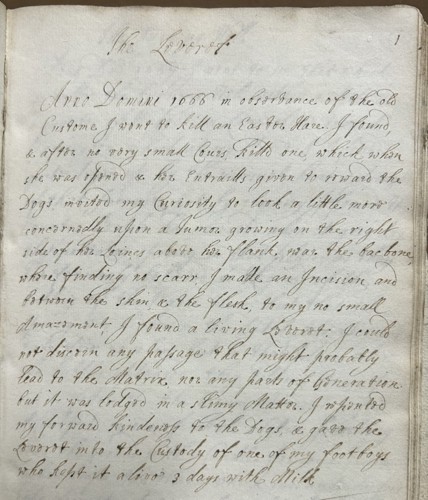 The Leveret
1
Anno Domini 1666 in observance of the old
Custome I went to kill an Easter Hare. I found,
& after no very small Cours, kill'd one, which when
she was opened & her Entraills given to reward the
Dogs, invited my Curiosity to look a little more
concernedly upon a Tumor growing on the right
side of her Loines above her flank, near the backbone,
where finding no scarr I made an Incision, and
between the skin & the flesh, to my no small
Amazement I found a living Leveret: I could
not discern any passage that might probably
lead to the Matrix, nor any parts of Generation
but it was lodged in a slimy Matter. I repented
my forward kindness to the Dogs, & gave the
Leveret into the Custody of one of my footboys
who kept it alive 3 days with Milk